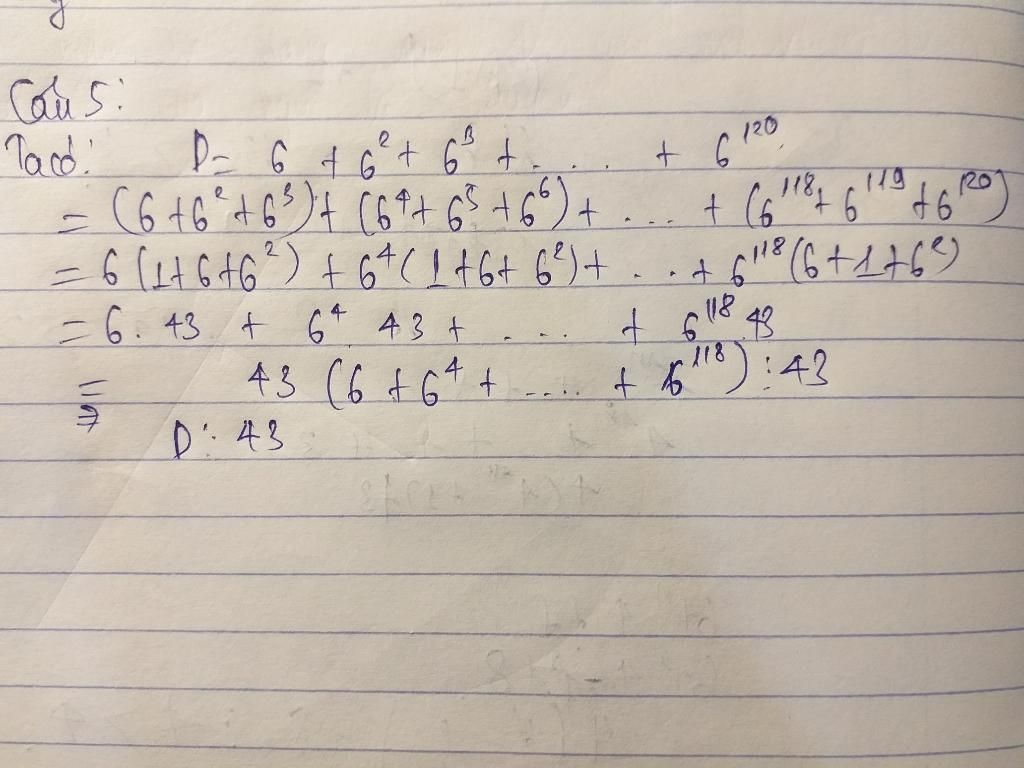 Câu 5:
Ta có: D = 6 + 6² + 6³ + .... + 6¹²⁰
= (6 + 6² + 6³) + (6⁴ + 6⁵ + 6⁶) + ... + (6¹¹⁸ + 6¹¹⁹ + 6¹²⁰)
= 6 (1 + 6 + 6²) + 6⁴ (1 + 6 + 6²) + ... + 6¹¹⁸ (6 + 1 + 6²)
= 6 . 43 + 6⁴ 43 + .... + 6¹¹⁸ 43
= 43 (6 + 6⁴ + .... + 6¹¹⁸) ⋮ 43
⇒ D ⋮ 43